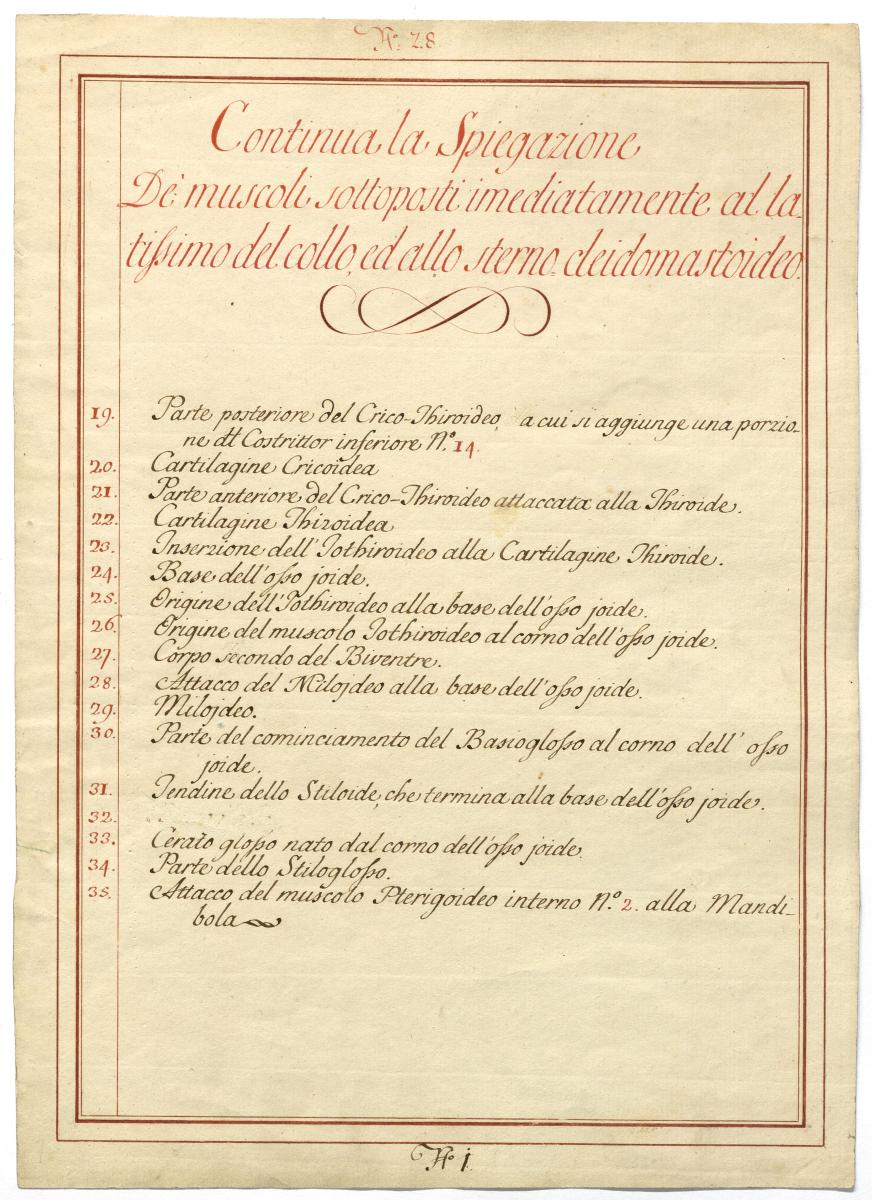 N.º 28
Continua la Spiegazione
De' muscoli sottoposti imediatamente al la-
tissimo del collo, ed allo sterno-cleidomastoideo.
19. Parte posteriore del Crico-Thiroideo, a cui si aggiunge una porzio-
ne dll Costrittor inferiore N.º 14.
20. Cartilagine Cricoidea
21. Parte anteriore del Crico-Thiroideo attaccata alla Thiroide.
22. Cartilagine Thiroidea
23. Inserzione dell'Iothiroideo alla Cartilagine Thiroide.
24. Base dell'osso joide.
25. Origine dell'Iothiroideo alla base dell'osso joide.
26. Origine del muscolo Iothiroideo al corno dell'osso joide.
27. Corpo secondo del Biventre.
28. Attacco del Milojdeo alla base dell'osso joide.
29. Milojdeo.
30. Parte del cominciamento del Basioglosso al corno dell' osso
joide.
31. Tendine dello Stiloide, che termina alla base dell'osso joide.
32.
33. Cerato glosso nato dal corno dell'osso joide.
34. Parte dello Stiloglosso.
35. Attacco del muscolo Pterigoideo interno N.º 2. alla Mandi-
bola
Nº 1